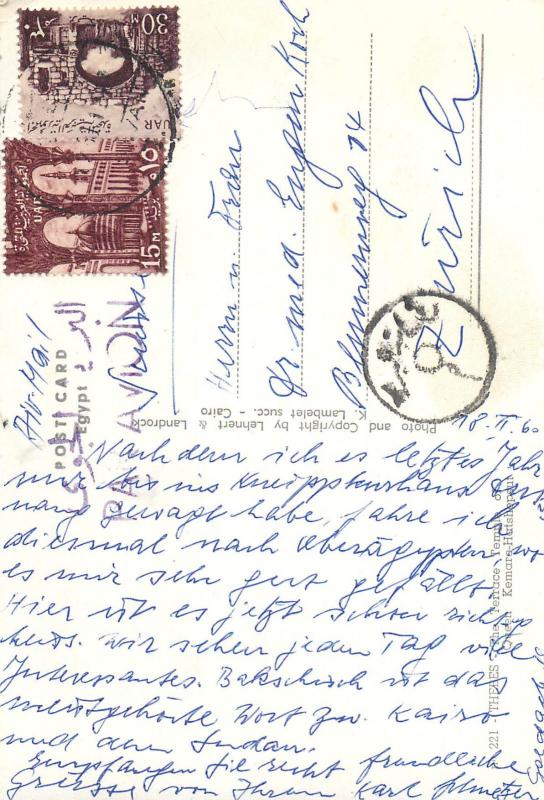 30 M
UAR
UAR
15 M
POST CARD
Egypt
البريد الجوى
PAR AVION
Air-Mail
Suisse
Herrn u. Frau
Dr med. Eugen Koch
Blumenweg 14
Zürich
Photo and Copyright by Lehnert & Landrock
K. Lambelet succ. - Cairo
221 - THEBES - The Terrace Temple of
Queen Kemare-Hatshepsut
18. II. 60
Nachdem ich es letztes Jahr
nur bis ins Kneippkurhaus
gewagt habe, fahre ich
diesmal nach Oberägypten, wo
es mir sehr gut gefällt.
Hier ist es jetzt schon richtig
heiss. Wir sehen jeden Tag viel
Interessantes. Bakschisch ist das
meistgehörte Wort zw. Kairo
und dem Sudan.
Empfangen Sie recht freundliche
Grüsse von Ihrem Karl